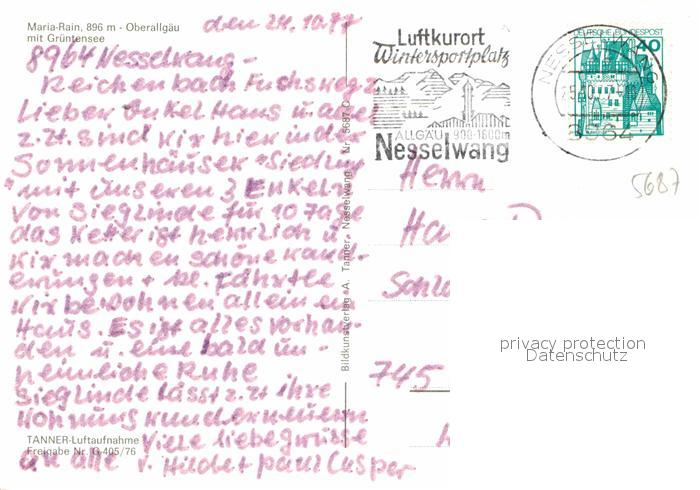 Maria-Rain, 896 m - Oberallgäu
mit Grüntensee
den 24.10.77
8964 Nesselwang -
Reichenbach Fuchsweg 2
Lieber Onkel Hans u. alle
z.Zt. sind wir hier in der
Sonnenhäuser Siedlung
mit unseren 3 Enkeln
von Sieglinde für 10 Tage
das Wetter ist herrlich u.
wir machen schöne Wand-
erungen + kl. Fährtle
wir bewohnen allein ein
Haus. Es ist alles vorhan-
den u. eine bald un-
heimliche Ruhe
Sieglinde lässt z.Zt ihre
Wohnung runderneuern
Viele liebe Grüsse
an alle v. Hilde + Paul Casper
TANNER-Luftaufnahme
Freigabe Nr. G 405/76
Bildkunstverlag A. Tanner, Nesselwang - Nr. 5687 C
Luftkurort
Wintersportplatz
ALLGÄU 900-1600m
Nesselwang
NESSELWANG
8964
DEUTSCHE BUNDESPOST
40
5687
Herrn
745
privacy protection
Datenschutz